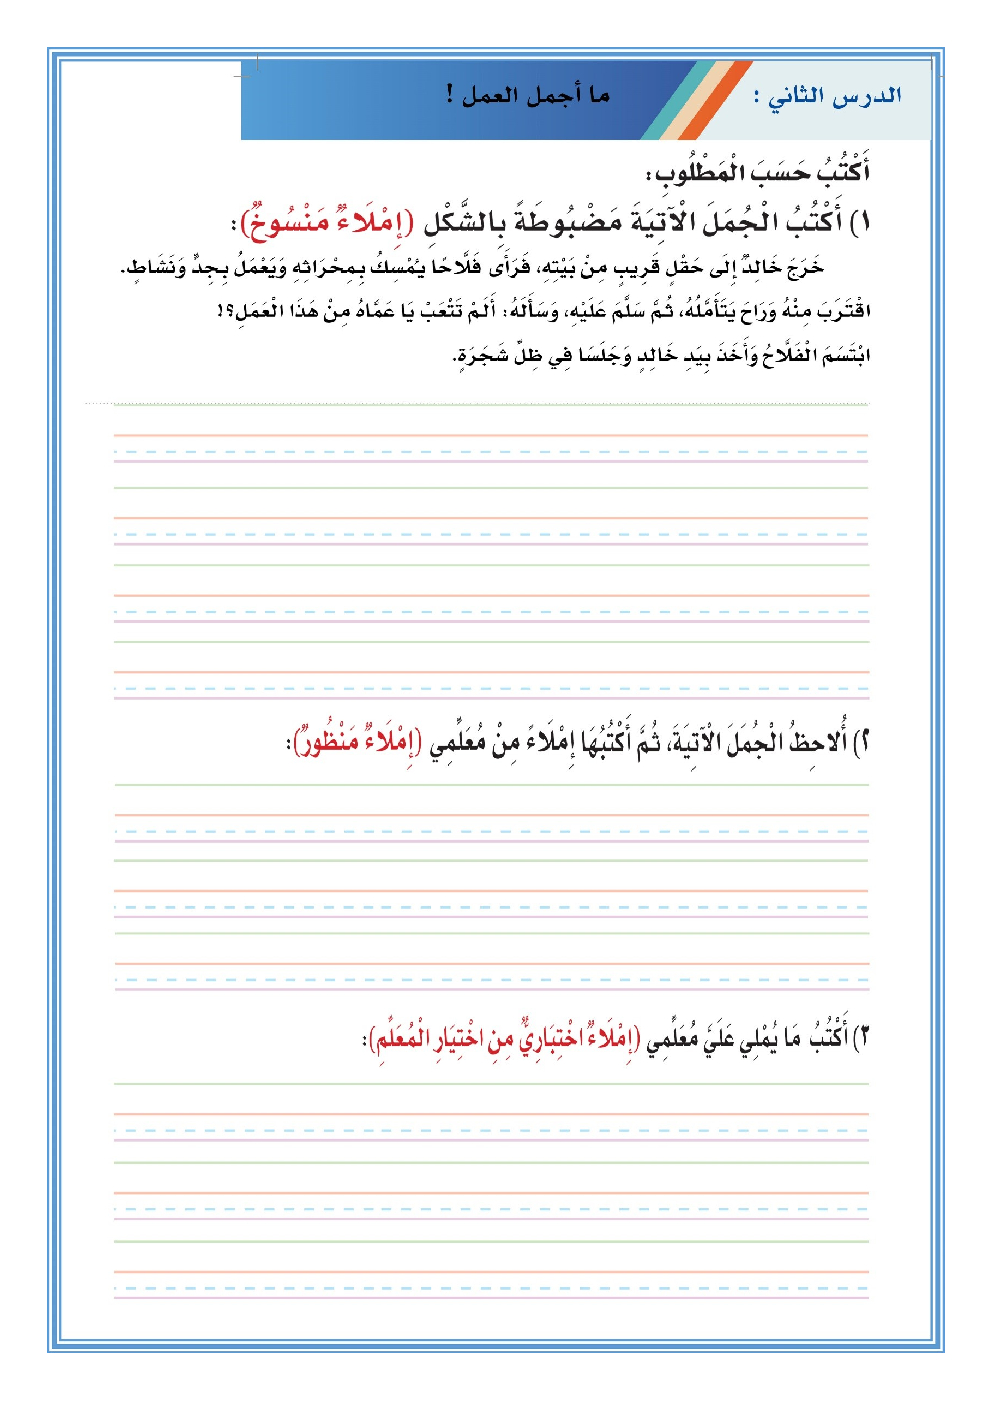 الدرس الثاني : ما أجمل العمل !
أَكْتُبُ حَسَبَ الْمَطْلُوبِ:
١) أَكْتُبُ الْجُمَلَ الْآتِيَةَ مَضْبُوطَةً بِالشَّكْلِ (إِمْلَاءٌ مَنْسُوخٌ):
خَرَجَ خَالِدٌ إِلَى حَقْلٍ قَرِيبٍ مِنْ بَيْتِهِ، فَرَأَى فَلَّاحًا يُمْسِكُ بِمِحْرَاثِهِ وَيَعْمَلُ بِجِدٍّ وَنَشَاطٍ.
اقْتَرَبَ مِنْهُ وَرَاحَ يَتَأَمَّلُهُ، ثُمَّ سَلَّمَ عَلَيْهِ، وَسَأَلَهُ: أَلَمْ تَتْعَبْ يَا عَمَّاهُ مِنْ هَذَا الْعَمَلِ؟!
ابْتَسَمَ الْفَلَّاحُ وَأَخَذَ بِيَدِ خَالِدٍ وَجَلَسَا فِي ظِلِّ شَجَرَةٍ.
٢) أُلاحِظُ الْجُمَلَ الْآتِيَةَ، ثُمَّ أَكْتُبُهَا إِمْلَاءً مِنْ مُعَلِّمِي (إِمْلَاءٌ مَنْظُورٌ):
٣) أَكْتُبُ مَا يُمْلِي عَلَيَّ مُعَلِّمِي (إِمْلَاءٌ اخْتِبَارِيٌّ مِنِ اخْتِيَارِ الْمُعَلِّمِ):